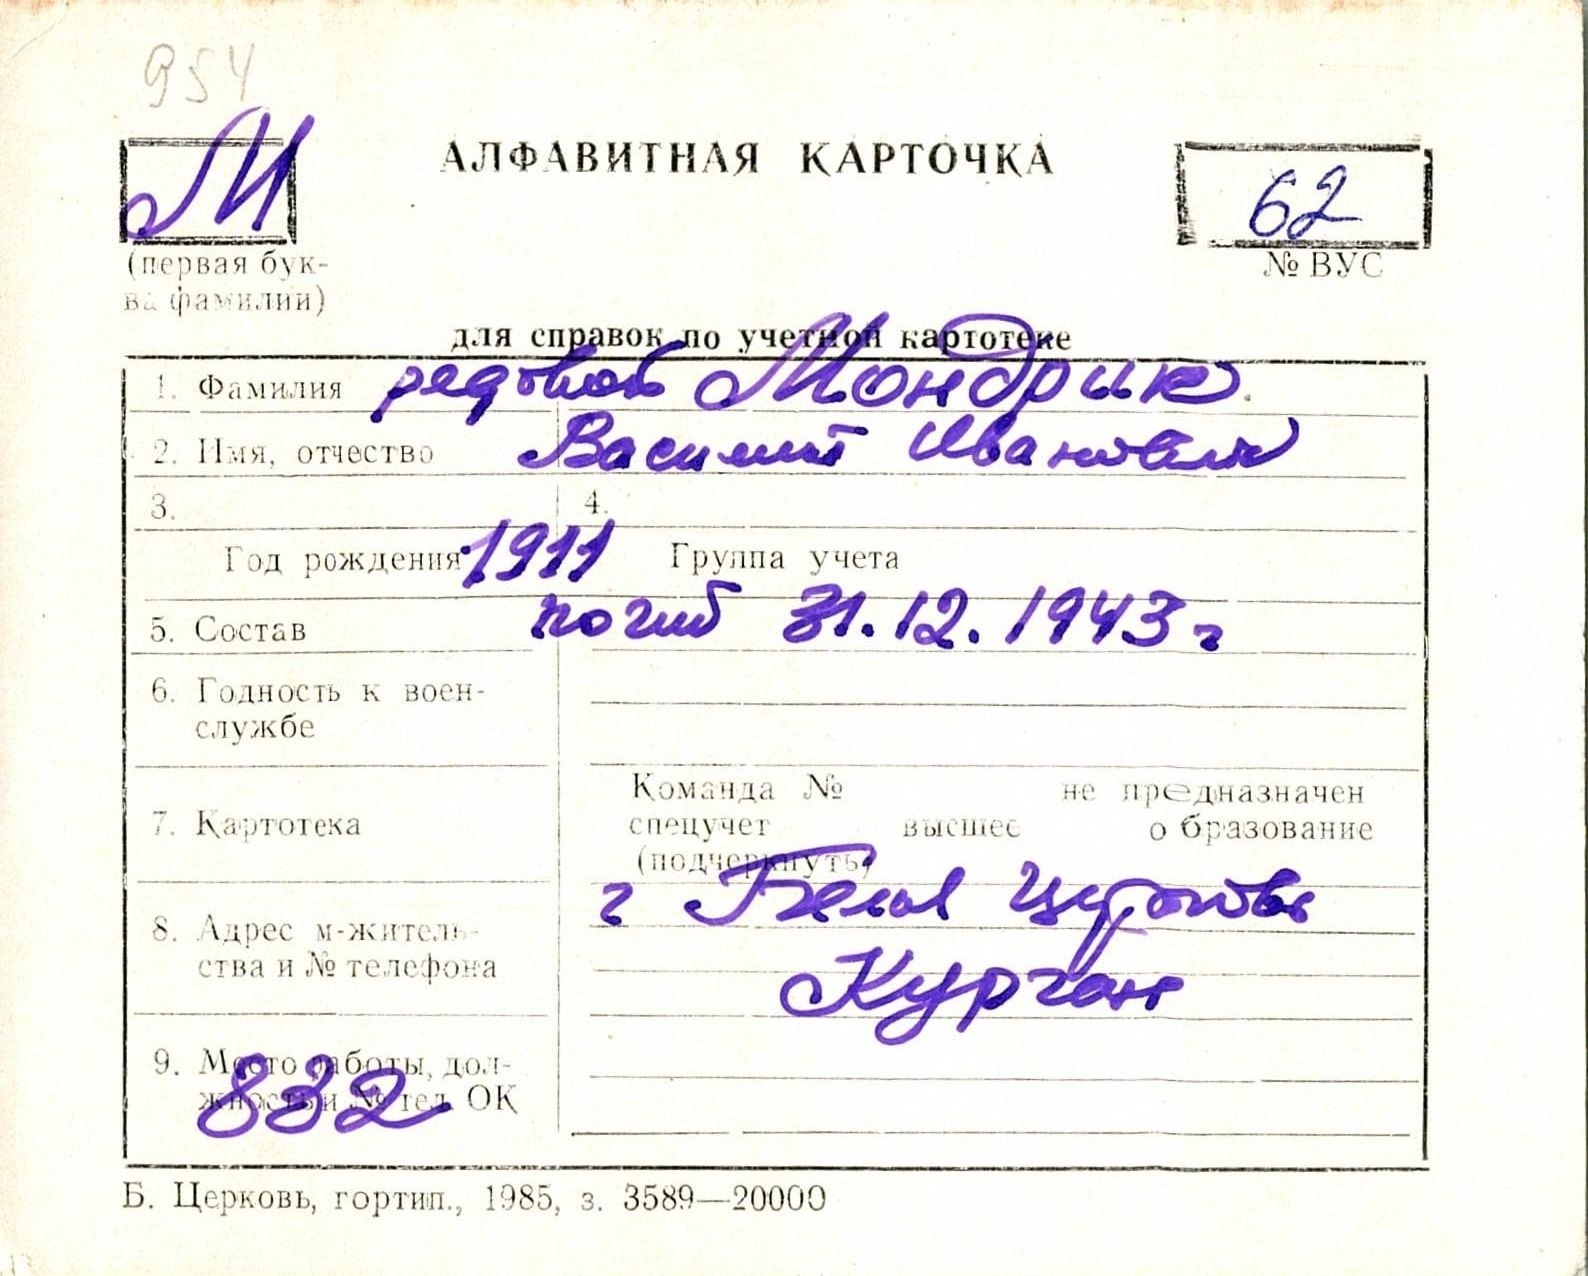 954
М
АЛФАВИТНАЯ КАРТОЧКА
62
(первая бук-
ва фамилии)
№ ВУС
для справок по учетной картотеке
1. Фамилия рядовой Мондрик
2. Имя, отчество Василий Иванович
3. 4.
Год рождения 1911 Группа учета
5. Состав погиб 31.12.1943 г
6. Годность к воен-
службе
Команда № не предназначен
7. Картотека спецучет высшее образование
(подчеркнуть)
г Белая Церковь
8. Адрес м-житель-
ства и № телефона
Курган
9. Место работы, дол-
жность и № тел. ОК
832
Б. Церковь, гортип., 1985, з. 3589—20000